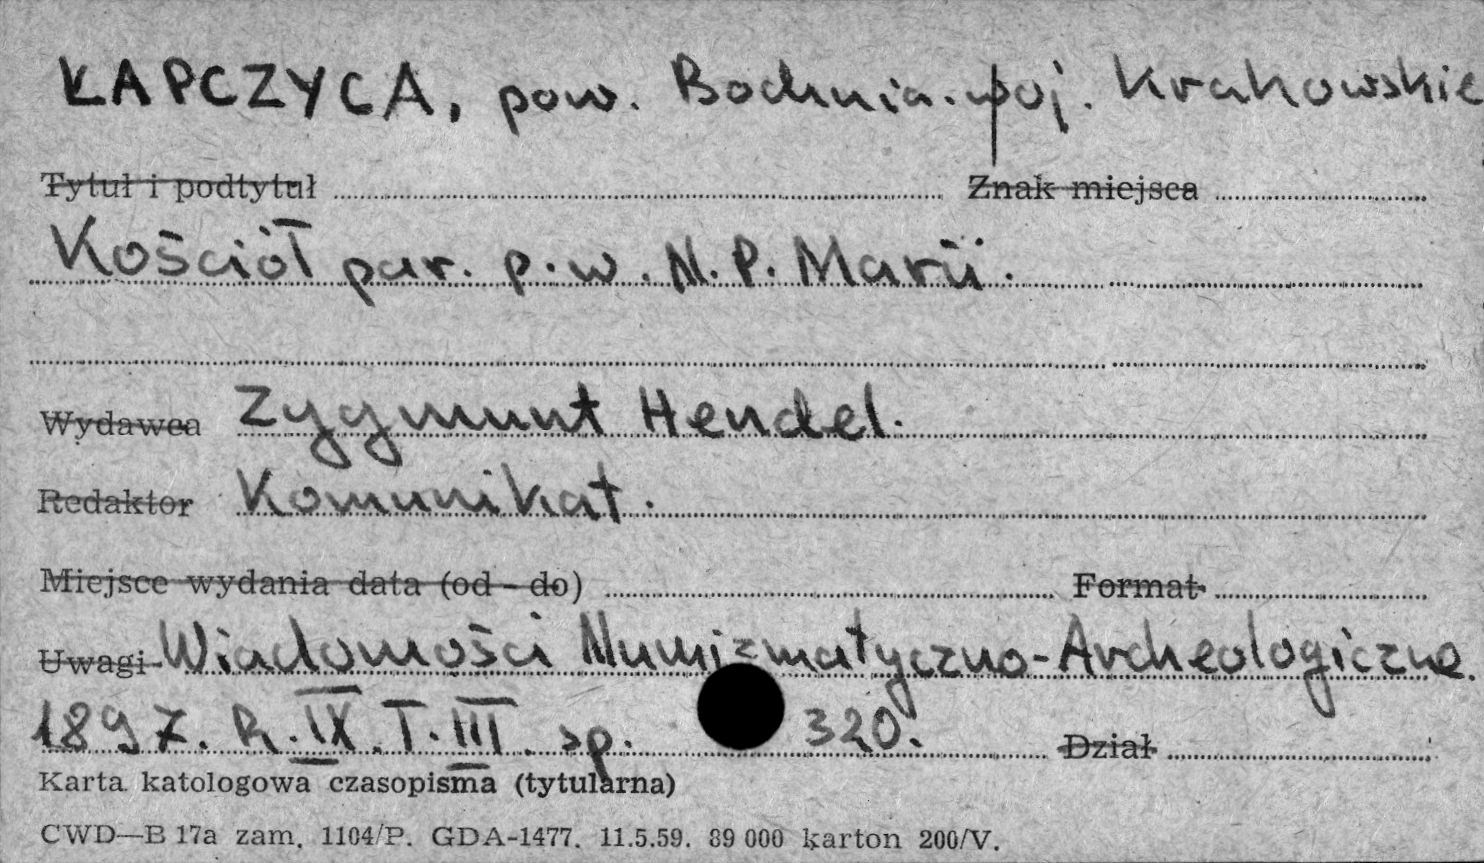 ŁAPCZYCA, pow. Bochnia. woj. Krakowskie
Tytuł i podtytuł Znak miejsca
Kościół par. p.w. N.P. Marii.
Wydawca Zygmunt Hendel.
Redaktor Komunikat.
Miejsce wydania data (od - do) Format
Uwagi Wiadomości Numizmatyczno-Archeologiczne.
1897. R. IX. T. III. sp. 320. Dział
Karta katologowa czasopisma (tytularna)
CWD—B 17a zam. 1104/P. GDA-1477. 11.5.59. 89 000 karton 200/V.